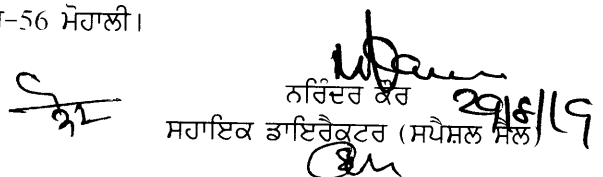 -56 ਮੋਹਾਲੀ।
ਨਰਿੰਦਰ ਕੌਰ
ਸਹਾਇਕ ਡਾਇਰੈਕਟਰ (ਸਪੈਸ਼ਲ ਸੈਲ)